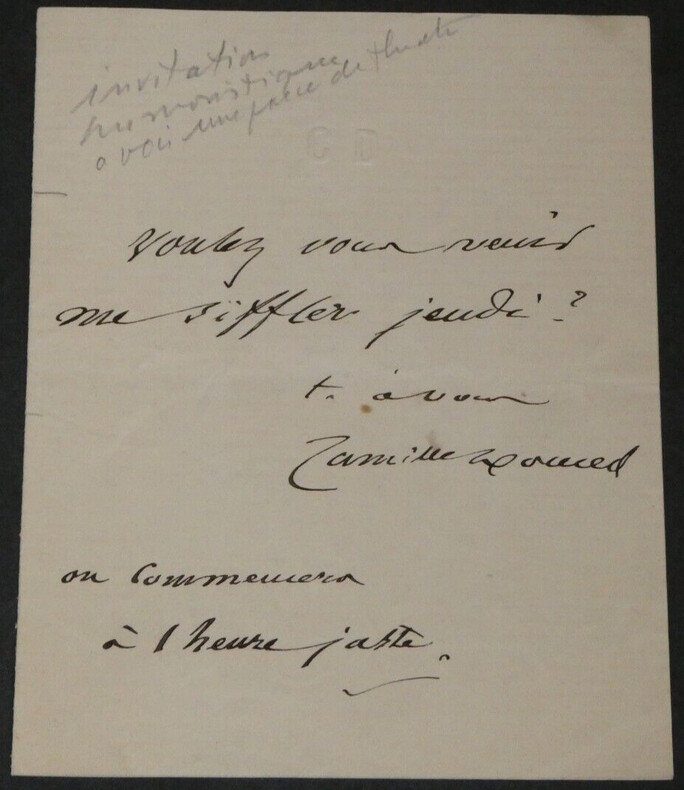 invitation
humoristique
a voir une piece de theatre
C D
Voulez vous venir
me siffler jeudi ?
t. à vous
Camille Doucet
on commencera
à 1 heure juste.